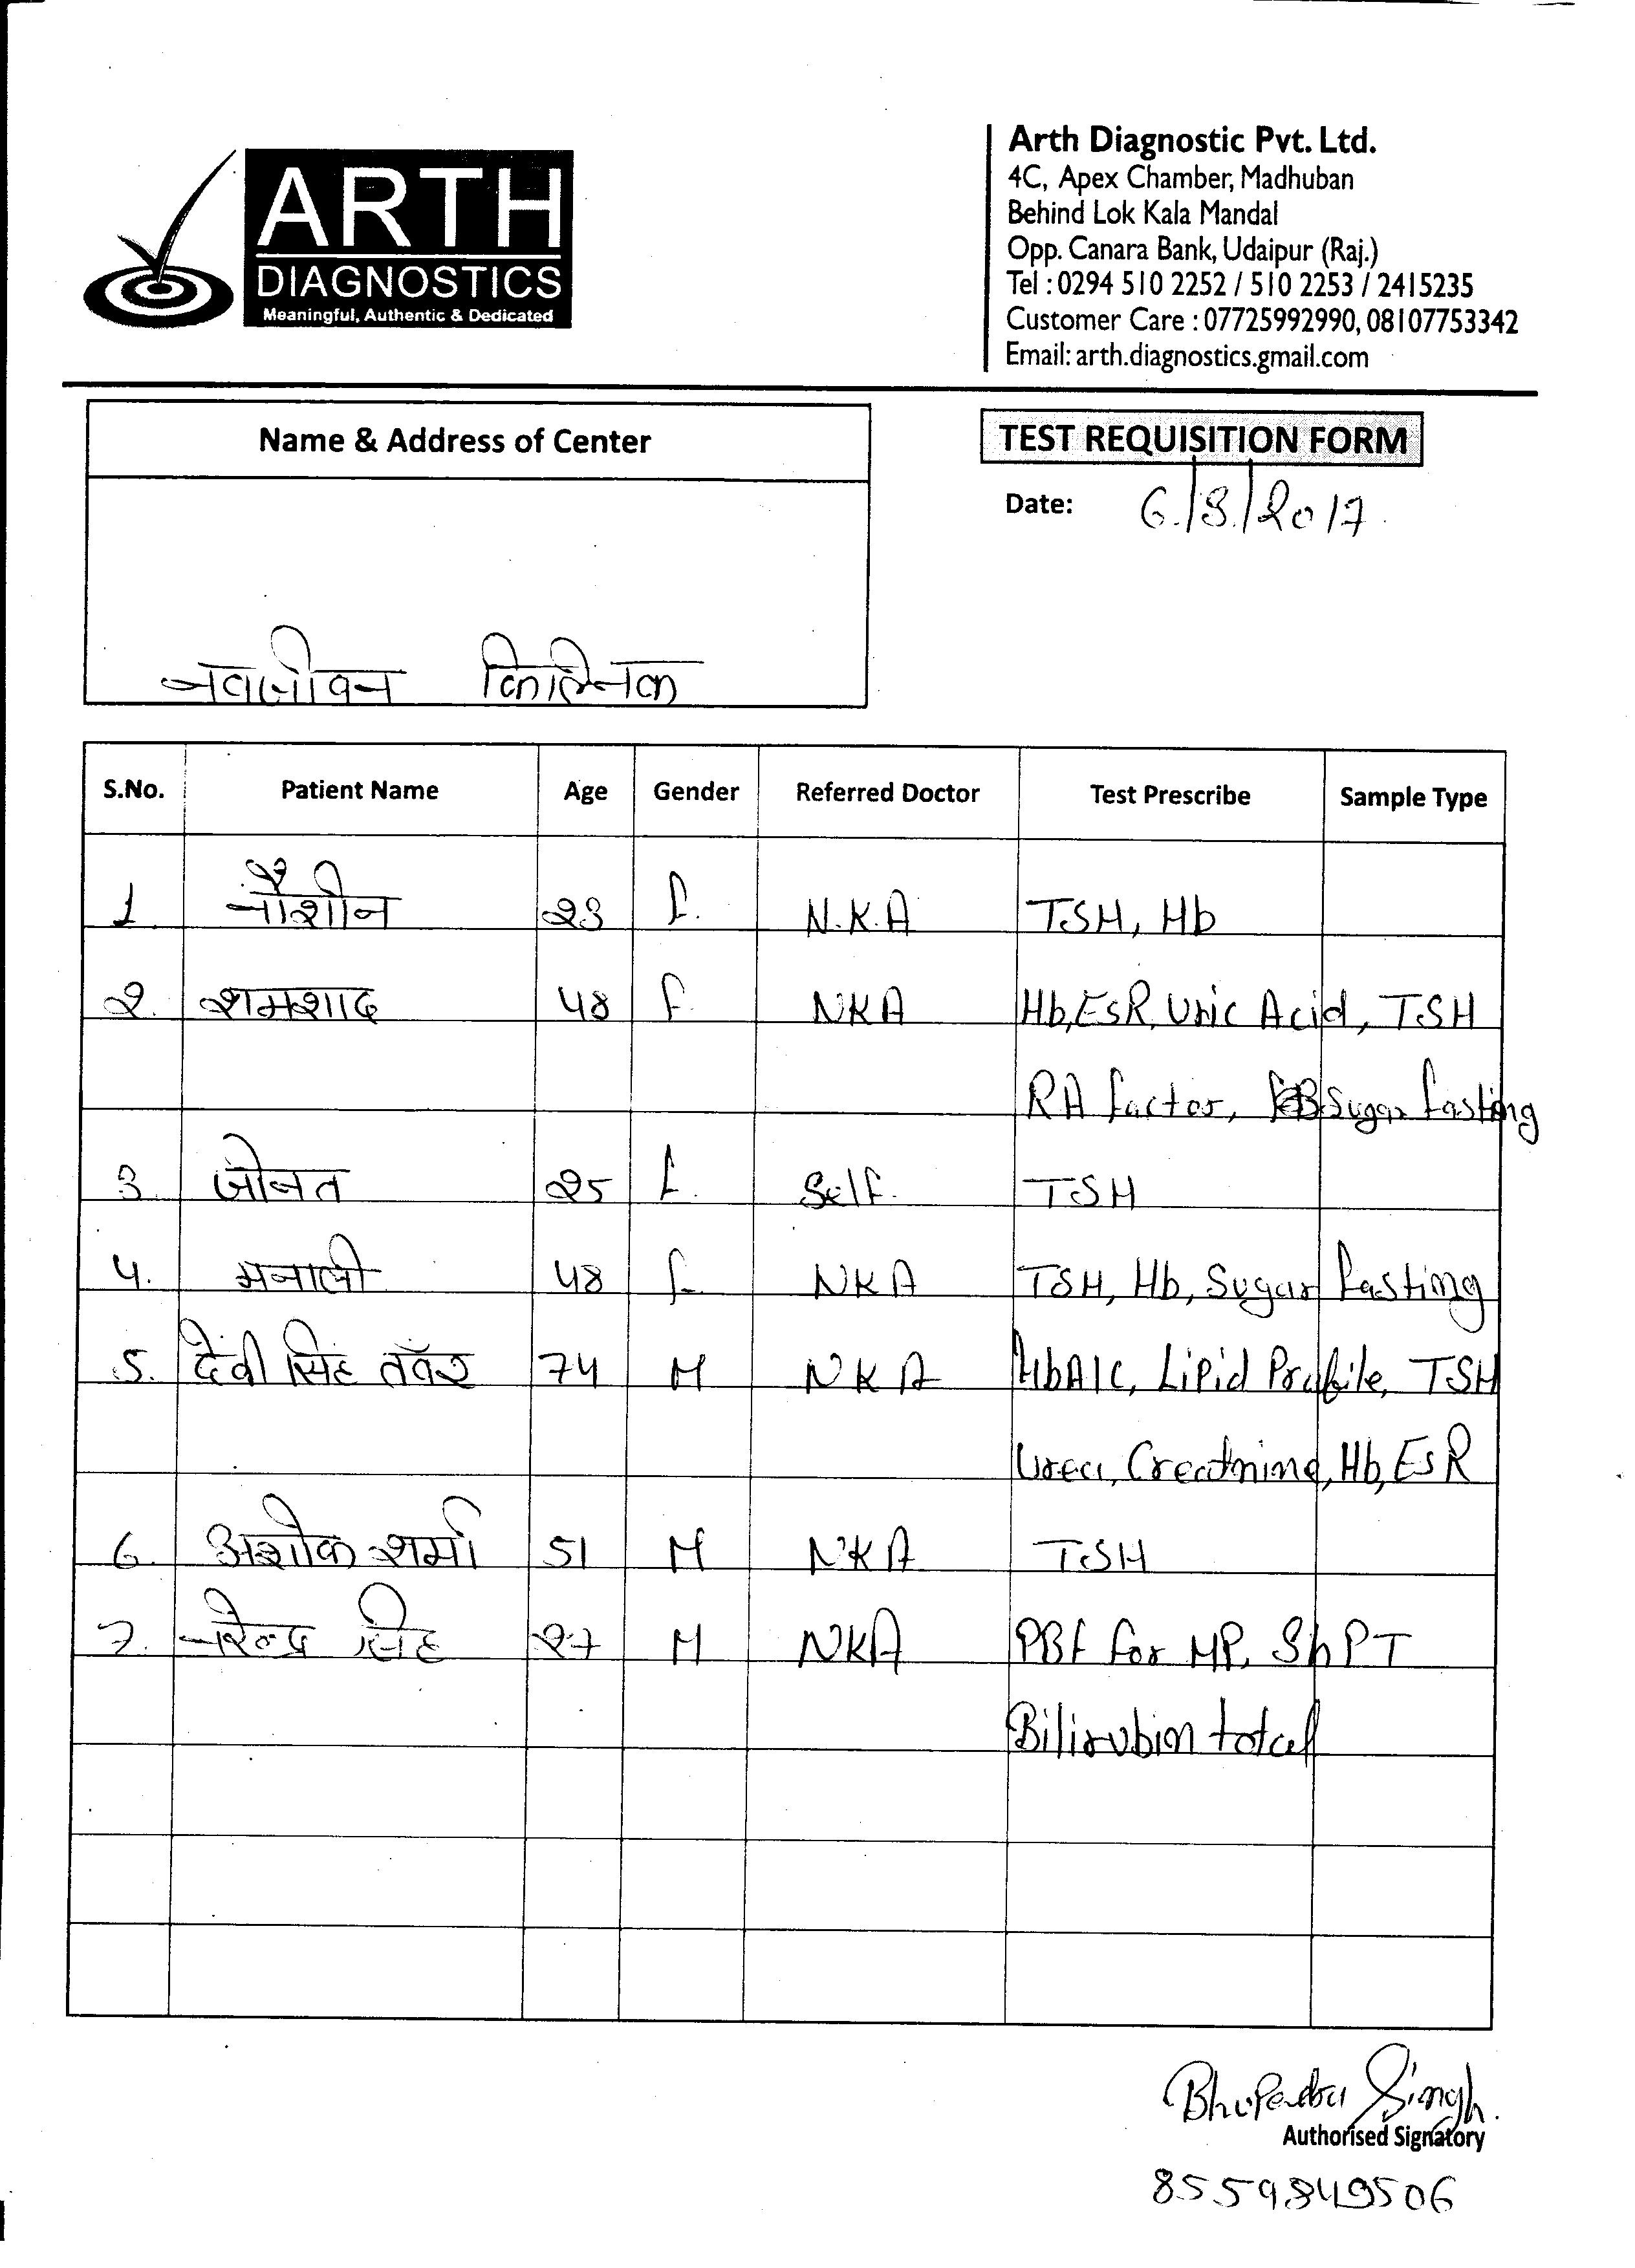 ARTH
DIAGNOSTICS
Meaningful, Authentic & Dedicated
Arth Diagnostic Pvt. Ltd.
4C, Apex Chamber, Madhuban
Behind Lok Kala Mandal
Opp. Canara Bank, Udaipur (Raj.)
Tel : 0294 510 2252 / 510 2253 / 2415235
Customer Care : 07725992990, 08107753342
Email: arth.diagnostics.gmail.com
Name & Address of Center
नवजीवन किलिनक
TEST REQUISITION FORM
Date: 6/8/2017
S.No. Patient Name Age Gender Referred Doctor Test Prescribe Sample Type
1 नौशीन 23 F. N.K.A TSH, Hb
2. शमशाद 48 F NKA Hb, EsR, Uric Acid, TSH
RA factor, Sugar fasting
3. जीनत 25 F. Self. TSH
4. मनाली 48 F NKA TSH, Hb, Sugar fasting
5. देवी सिंह तवँर 74 M NKA HbA1C, Lipid Profile, TSH
Urea, Creatnine, Hb, EsR
6. अशोक शर्मा 51 M NKA TSH
7. नरेन्द्र सिंह 27 M NKA PBF for MP, ShPT
Bilirubin total
Singh.
Authorised Signatory